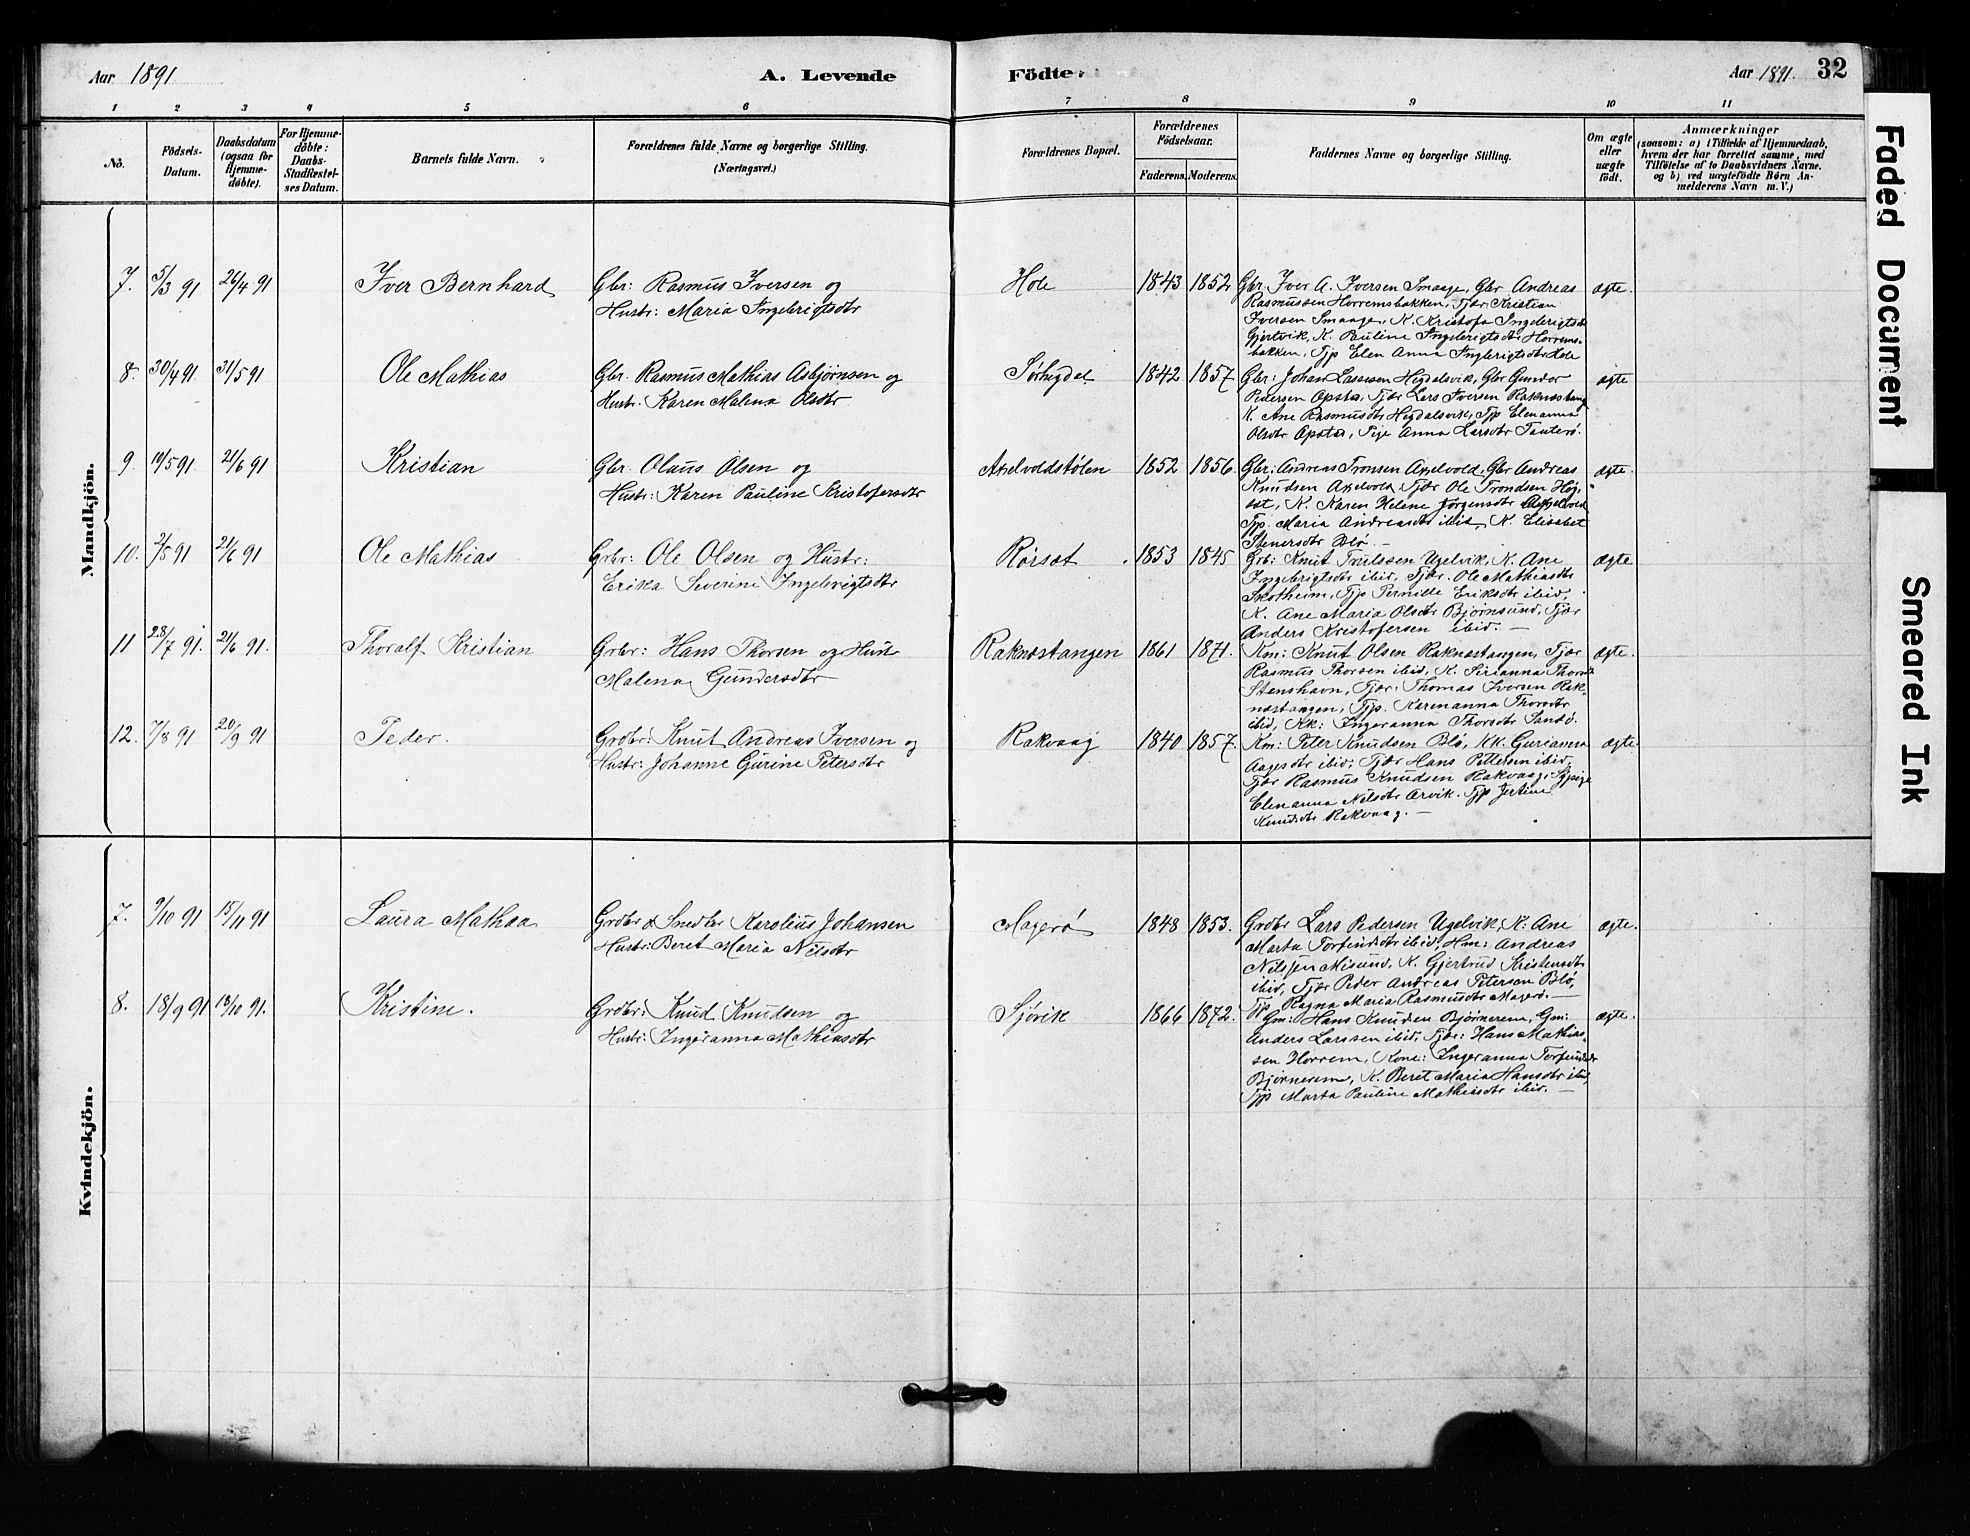 Aar 1891
A. Levende
Födte
Aar 1891. 32
1 2 3 4 5 6 7 8 9 10 11
No.
Födsels-
Datum.
Daabsdatum
(ogsaa for
Hjemme-
døbte).
For Hjemme-
døbte:
Daabs-
Stadfæstel-
ses Datum.
Barnets fulde Navn.
Forældrenes fulde Navne og borgerlige Stilling.
(Næringsvei.)
Forældrenes Bopæl.
Forældrenes
Födselsaar.
Faderens. Moderens.
Faddernes Navne og borgerlige Stilling.
Om ægte
eller
uægte
födt.
Anmærkninger
(saasom: a) i Tilfælde af Hjemmedaab,
hvem der har forrettet samme, med
Tilföielse af to Daabsvidners Navne.
og b) ved uægtefödte Børn An-
melderens Navn m. V.)
Mandkjön.
7. 5/3 91 26/4 91 Iver Bernhard
Gbr: Rasmus Iversen og
Hustr: Maria Ingebrigtsdtr
Hole 1843 1852
Gbr. Iver A. Iversen Smaage, Gbr Andreas
Rasmussen Horremsbakken, Tjdr Kristian
Iversen Smaage, K. Kristofa Ingebrigtsdtr
Gjertvik, K. Pauline Ingebrigtsdtr Horrems-
bakken, Tjp Elen Anna Ingebrigtsdtr Hole
ægte.
8. 30/4 91 31/5 91 Ole Mathias
Gbr. Rasmus Mathias Asbjørnsen og
Hustr. Karen Malena Olsdtr
Sørhegdal 1842 1857
Gbr: Johan Lassesen Hegdalsvik, Gbr Gunder
Pedersen Opsta, Tjdr Lars Iversen Raknæstang
K Ane Rasmusdtr Hegdalsvik, Tjp Elenanna
Olsdtr Opsta, Pige Anna Larsdtr Tauterø.
ægte
9. 19/5 91. 21/6 91 Kristian
Gbr. Olaus Olsen og
Hustr: Karen Pauline Kristofersdtr
Axelvoldstølen 1852 1856
Gbr: Andreas Tronsen Axelvold, Gbr Andreas
Knudsen Axelvold Tjdr Ole Trondsen Høg-
set, K. Karen Helene Jørgensdtr Axelvold
Tjp. Maria Andreasdtr ibid, K. Elisabet
Stenersdtr Blø.
ægte.
10. 2/5 91 21/6 91 Ole Mathias
Grbr: Ole Olsen og Hustr:
Erika Severine Ingebrigtsdtr
Rørsæt 1853 1845
Grbr: Knut Trulssen Ugelvik, K. Ane
Ingebrigtsdtr ibid, Tjdr. Ole Mathiasdtr
Skotheim, Tjp Pernille Eriksdtr ibid,
K. Ane Maria Olsdtr Bjørnsund, Tjdr
Anders Kristofersen ibid. —
ægte
11 28/7 91. 21/6 91. Thoralf Kristian
Grbr: Hans Thorsen og Hust
Malena Gundersdtr
Raknæstangen 1861 1871.
Km: Knut Olsen Raknæstangen, Tjdr
Rasmus Thorsen ibid, K. Sirianna Thorsdtr
Stenshavn, Tjdr: Thomas Iversen Rak-
næstangen, Tjp. Karenanna Thorsdtr
ibid, Kk: Ingeranna Thorsdtr Sandø.
ægte.
12. 7/8 91 20/9 91 Peder.
Grdbr: Knut Andreas Iversen og
Hustr: Johanne Gurine Petersdtr
Rakvaag 1840 1857.
Km: Peter Knudsen Blø, KK. Gurianna
Aagesdtr ibid, Tjdr Hans Pettersen ibid,
Tjdr Rasmus Knudsen Rakvaag,
Elenanna Nilsdtr Orvik. Tjp Jertine
Knudsdtr Rakvaag. —
ægte
Kvindekjön.
7. 9/10 91 15/11 91 Laura Mathea
Grdbr & Snedker Karolius Johansen
Hustr: Beret Maria Nilsdtr
Magerø 1848 1853.
Grdbr Lars Pedersen Ugelvik, K: Ane
Marta Torfinsdtr ibid, Hm: Andreas
Nilssen Misund, K. Gjertrud Kristensdtr
ibid, Tjdr Peder Andreas Petersen Blø,
Tjp Ragna Maria Rasmusdtr Magerø. —
ægte.
8. 18/9 91 18/10 91. Kristine.
Grdbr: Knud Knudsen og
Hustr: Ingeranna Mathiasdtr
Sjøvik 1866 1872.
Gm: Hans Knudsen Bjørnerem, Gm:
Anders Larssen ibid, Tjdr: Hans Mathias-
sen Horrem, Kone: Ingeranna Torfinsdtr
Bjørnerem, K. Beret Maria Hansdtr ibid,
Tjp Marta Pauline Mathiasdtr ibid. —
ægte.
Faded Document
Smeared Ink